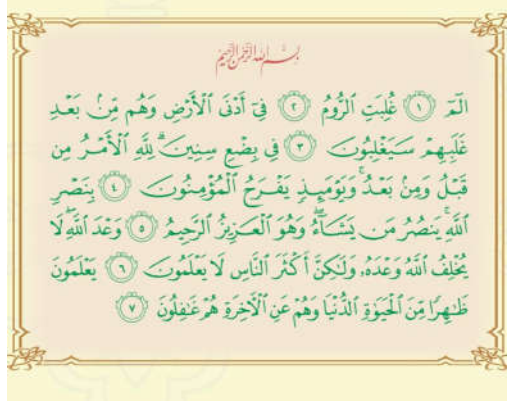 بِسْمِ اللهِ الرَّحْمٰنِ الرَّحِيمِ
الٓمٓ ﴿١﴾ غُلِبَتِ ٱلرُّومُ ﴿٢﴾ فِىٓ أَدْنَى ٱلْأَرْضِ وَهُم مِّنۢ بَعْدِ
غَلَبِهِمْ سَيَغْلِبُونَ ﴿٣﴾ فِى بِضْعِ سِنِينَ ۗ لِلَّهِ ٱلْأَمْرُ مِن
قَبْلُ وَمِنۢ بَعْدُ ۚ وَيَوْمَئِذٍ يَفْرَحُ ٱلْمُؤْمِنُونَ ﴿٤﴾ بِنَصْرِ
ٱللَّهِ ۚ يَنصُرُ مَن يَشَآءُ ۖ وَهُوَ ٱلْعَزِيزُ ٱلرَّحِيمُ ﴿٥﴾ وَعْدَ ٱللَّهِ ۖ لَا
يُخْلِفُ ٱللَّهُ وَعْدَهُۥ وَلَٰكِنَّ أَكْثَرَ ٱلنَّاسِ لَا يَعْلَمُونَ ﴿٦﴾ يَعْلَمُونَ
ظَٰهِرًا مِّنَ ٱلْحَيَوٰةِ ٱلدُّنْيَا وَهُمْ عَنِ ٱلْءَاخِرَةِ هُمْ غَٰفِلُونَ ﴿٧﴾